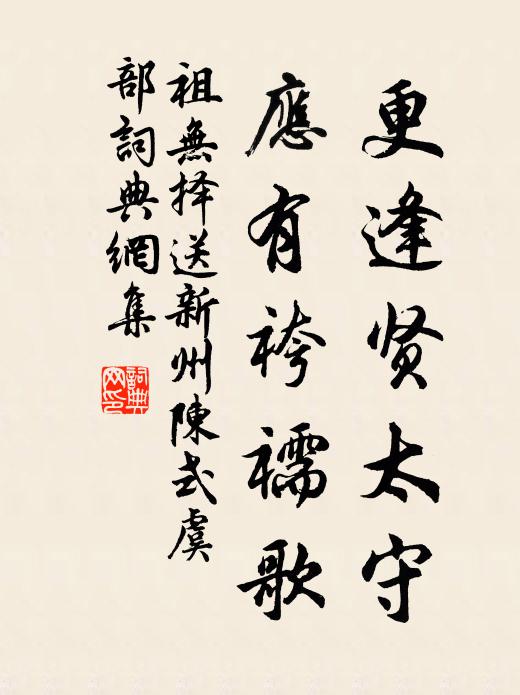 更逢贤太守
應有袴襦歌
祖無择送新州陳式虞
部詞典網集
詞典
网印